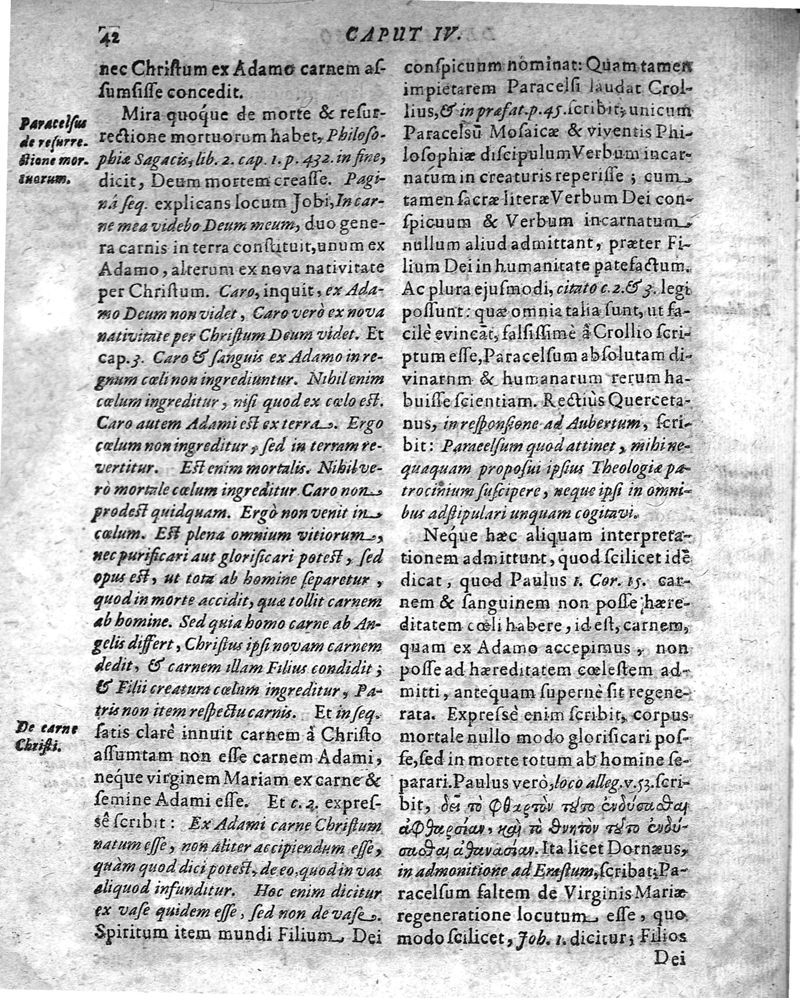 42
CAPUT IV.
nec Chriſtum ex Adamo carnem aſ-
ſumſiſſe concedit.
Paracelſus
de reſurre-
ctione mor-
tuorum.
Mira quoq́ue de morte & reſur-
rectione mortuorum habet, Philoſo-
phiæ Sagacis, lib. 2. cap. 1. p. 432. in fine,
dicit, Deum mortem creaſſe. Pagi-
nâ ſeq. explicans locum Jobi, In car-
ne mea videbo Deum meum, duo gene-
ra carnis in terra conſtituit, unum ex
Adamo, alterum ex nova nativitate
per Chriſtum. Caro, inquit, ex Ada-
mo Deum non videt, Caro verò ex nova
nativitate per Chriſtum Deum videt. Et
cap. 3. Caro & ſanguis ex Adamo in re-
gnum cœli non ingrediuntur. Nihil enim
cœlum ingreditur, niſi quod ex cœlo eſt.
Caro autem Adami eſt ex terra. Ergo
cœlum non ingreditur, ſed in terram re-
vertitur. Eſt enim mortalis. Nihil ve-
rò mortale cœlum ingreditur Caro non
prodeſt quidquam. Ergò non venit in
cœlum. Eſt plena omnium vitiorum,
nec purificari aut glorificari poteſt, ſed
opus eſt, ut tota ab homine ſeparetur,
quod in morte accidit, quæ tollit carnem
ab homine. Sed quia homo carne ab An-
gelis differt, Chriſtus ipſi novam carnem
dedit, & carnem illam Filius condidit;
& Filii creatura cœlum ingreditur, Pa-
tris non item reſpectu carnis. Et in ſeq.
De carne
Chriſti.
ſatis clarè innuit carnem â Chriſto
aſſumtam non eſſe carnem Adami,
neque virginem Mariam ex carne &
ſemine Adami eſſe. Et c. 2. expreſ-
sê ſcribit: Ex Adami carne Chriſtum
natum eſſe, non aliter accipiendum eſſe,
quàm quod dici poteſt, de eo, quod in vas
aliquod infunditur. Hoc enim dicitur
ex vaſe quidem eſſe, ſed non de vaſe.
Spiritum item mundi Filium Dei
conſpicuum nominat: Quam tamen
impietarem Paracelſi laudat Crol-
lius, & in præfat. p. 45. ſcribit; unicum
Paracelſū Moſaicæ & viventis Phi-
loſophiæ diſcipulum Verbum incar-
natum in creaturis reperiſſe; cum
tamen ſacræ literæ Verbum Dei con-
ſpicuum & Verbum incarnatum
nullum aliud admittant, præter Fi-
lium Dei in humanitate patefactum.
Ac plura ejuſmodi, citato c. 2. & 3. legi
poſſunt: quæ omnia talia ſunt, ut fa-
cilè evincāt, falſiſſimè â Crollio ſcri-
ptum eſſe, Paracelſum abſolutam di-
vinarum & humanarum rerum ha-
buiſſe ſcientiam. Rectiùs Querceta-
nus, in reſponſione ad Aubertum, ſcri-
bit: Paracelſum quod attinet, mihi ne-
quaquam propoſui ipſius Theologiæ pa-
trocinium ſuſcipere, neque ipſi in omni-
bus adſtipulari unquam cogitavi.
Neq́ue hæc aliquam interpreta-
tionem admittunt, quod ſcilicet idē
dicat, quod Paulus 1. Cor. 15. car-
nem & ſanguinem non poſſe hære-
ditatem cœli habere, id eſt, carnem,
quam ex Adamo accepimus, non
poſſe ad hæreditatem cœleſtem ad-
mitti, antequam ſupernè ſit regene-
rata. Expreſſè enim ſcribit, corpus
mortale nullo modo glorificari poſ-
ſe, ſed in morte totum ab homine ſe-
parari. Paulus verò, loco alleg. v. 53. ſcri-
bit, δεῖ τὸ φθαρτὸν τοῦτο ἐνδύσασθαι
ἀφθαρσίαν, καὶ τὸ θνητὸν τοῦτο ἐνδύ-
σασθαι ἀθανασίαν. Ita licet Dornæus,
in admonitione ad Eraſtum, ſcribat; Pa-
racelſum ſaltem de Virginis Mariæ
regeneratione locutum eſſe, quo
modo ſcilicet, Joh. 1. dicitur; Filios
Dei